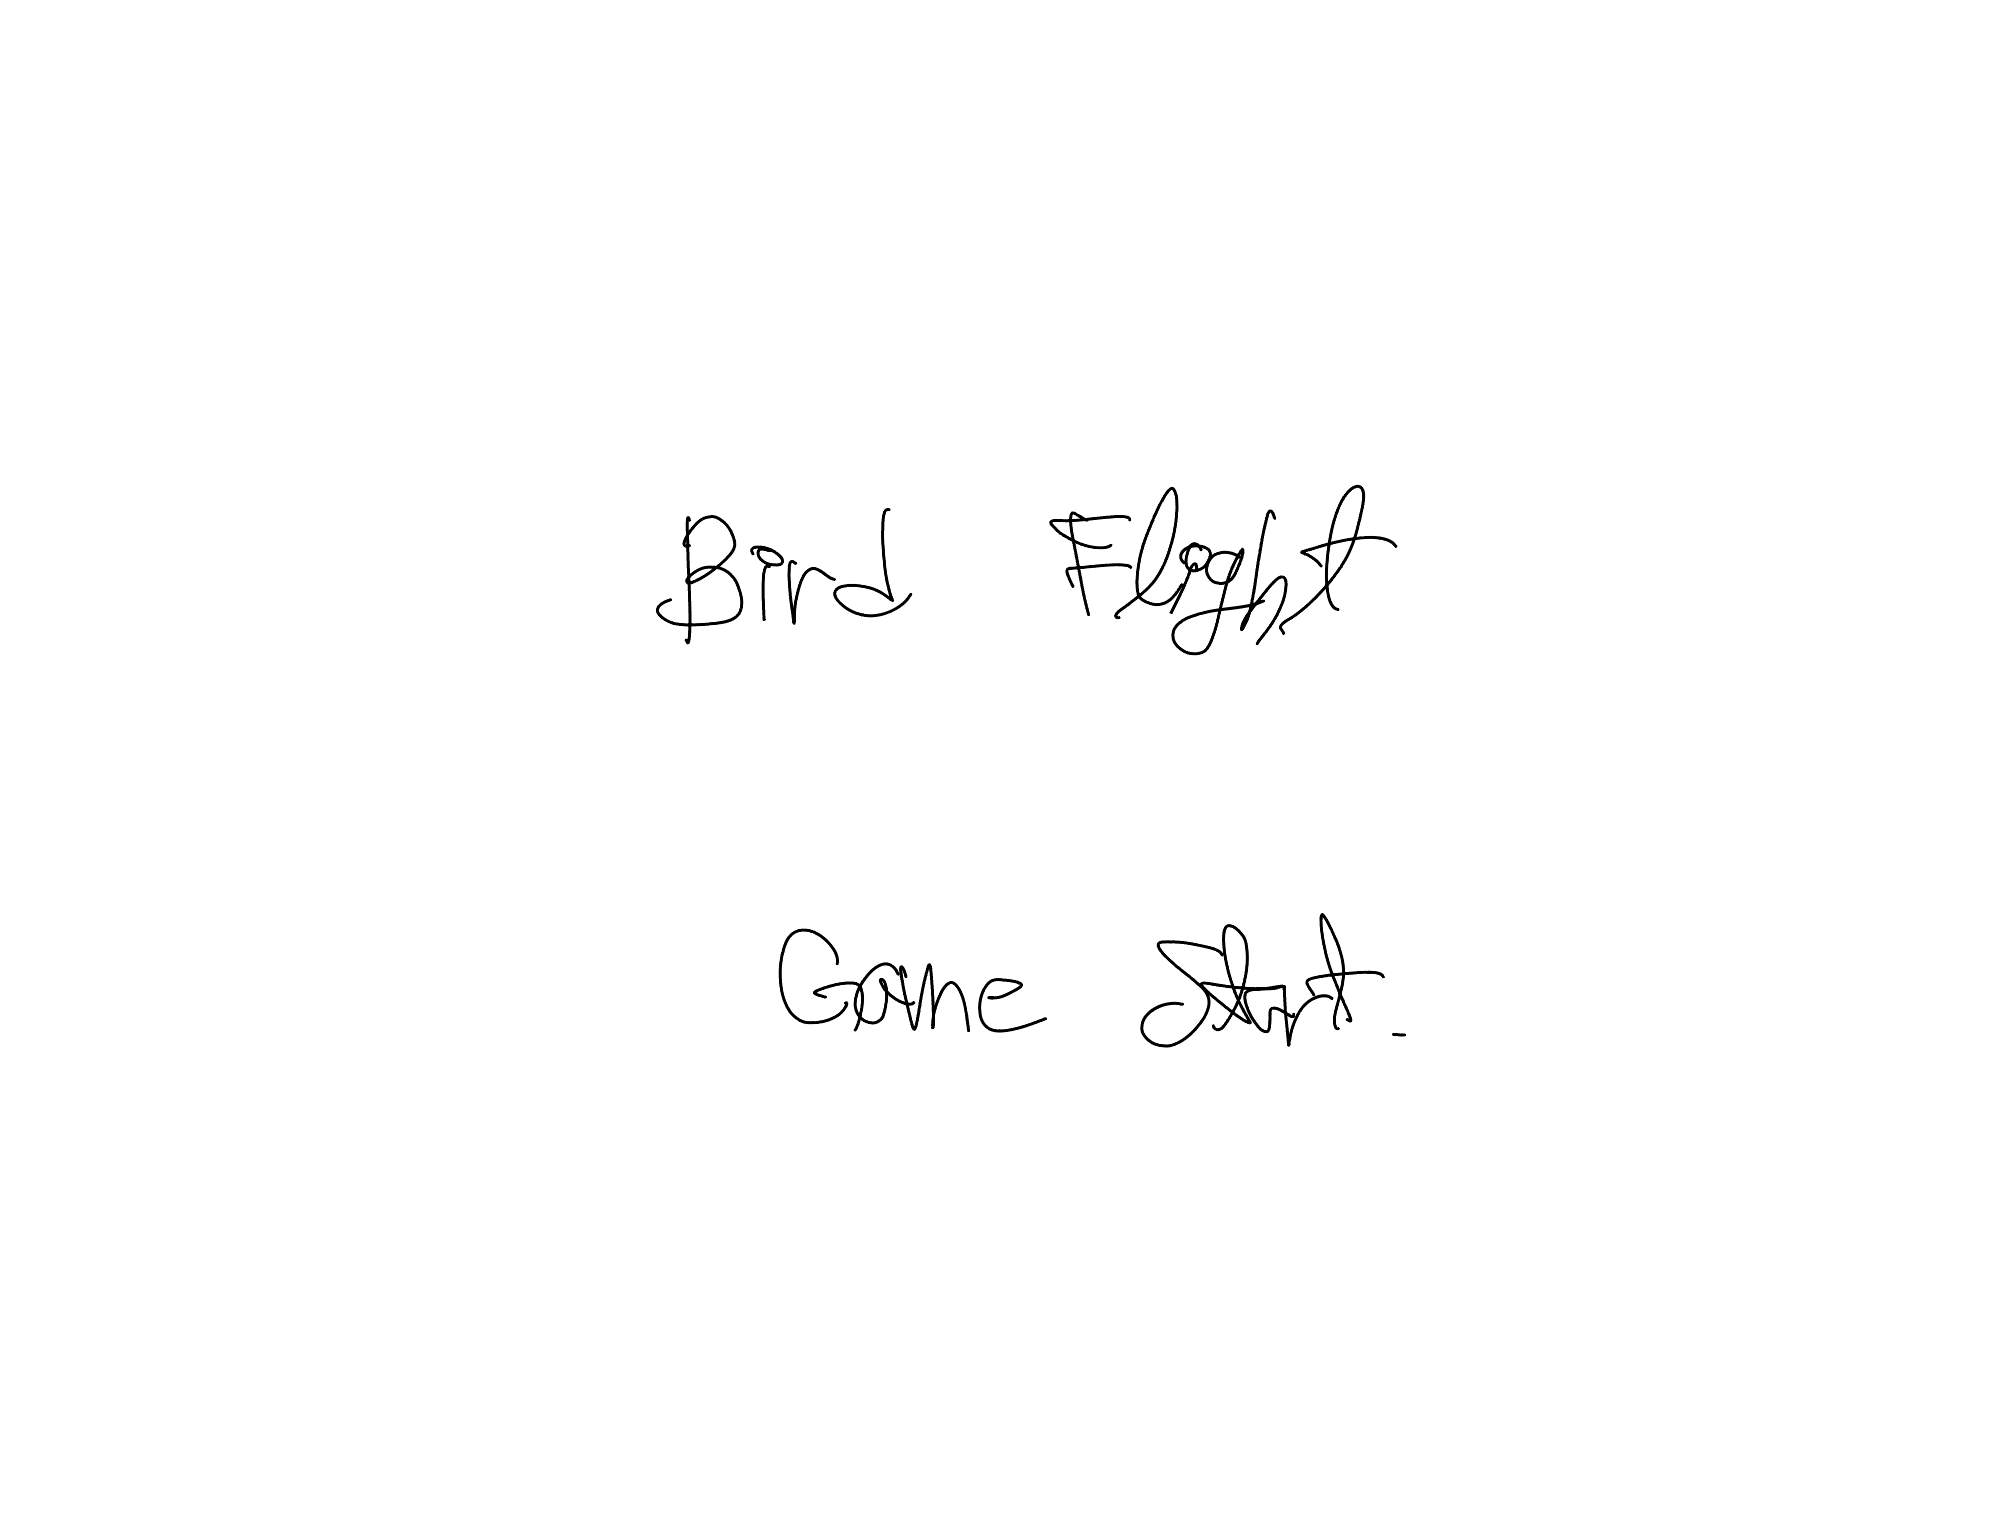 Bird Flight
Game Start.